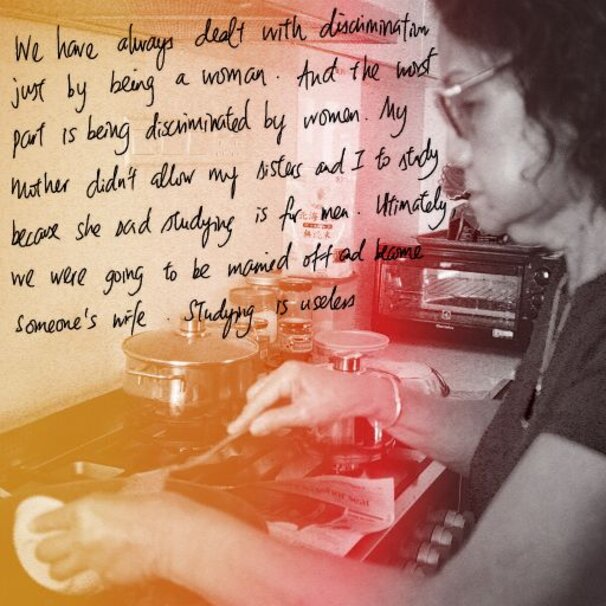 We have always dealt with discrimination
just by being a woman. And the worst
part is being discriminated by women. My
mother didn't allow my sisters and I to study
because she said studying is for men. Ultimately
we were going to be married off and become
someone's wife. Studying is useless
北海